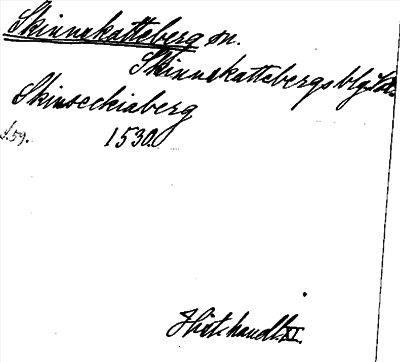 Skinnskatteberg sn.
Skinnskattebergs blg
Skinseckiaberg
s. 59. 1530.
Hist. handl. XI.